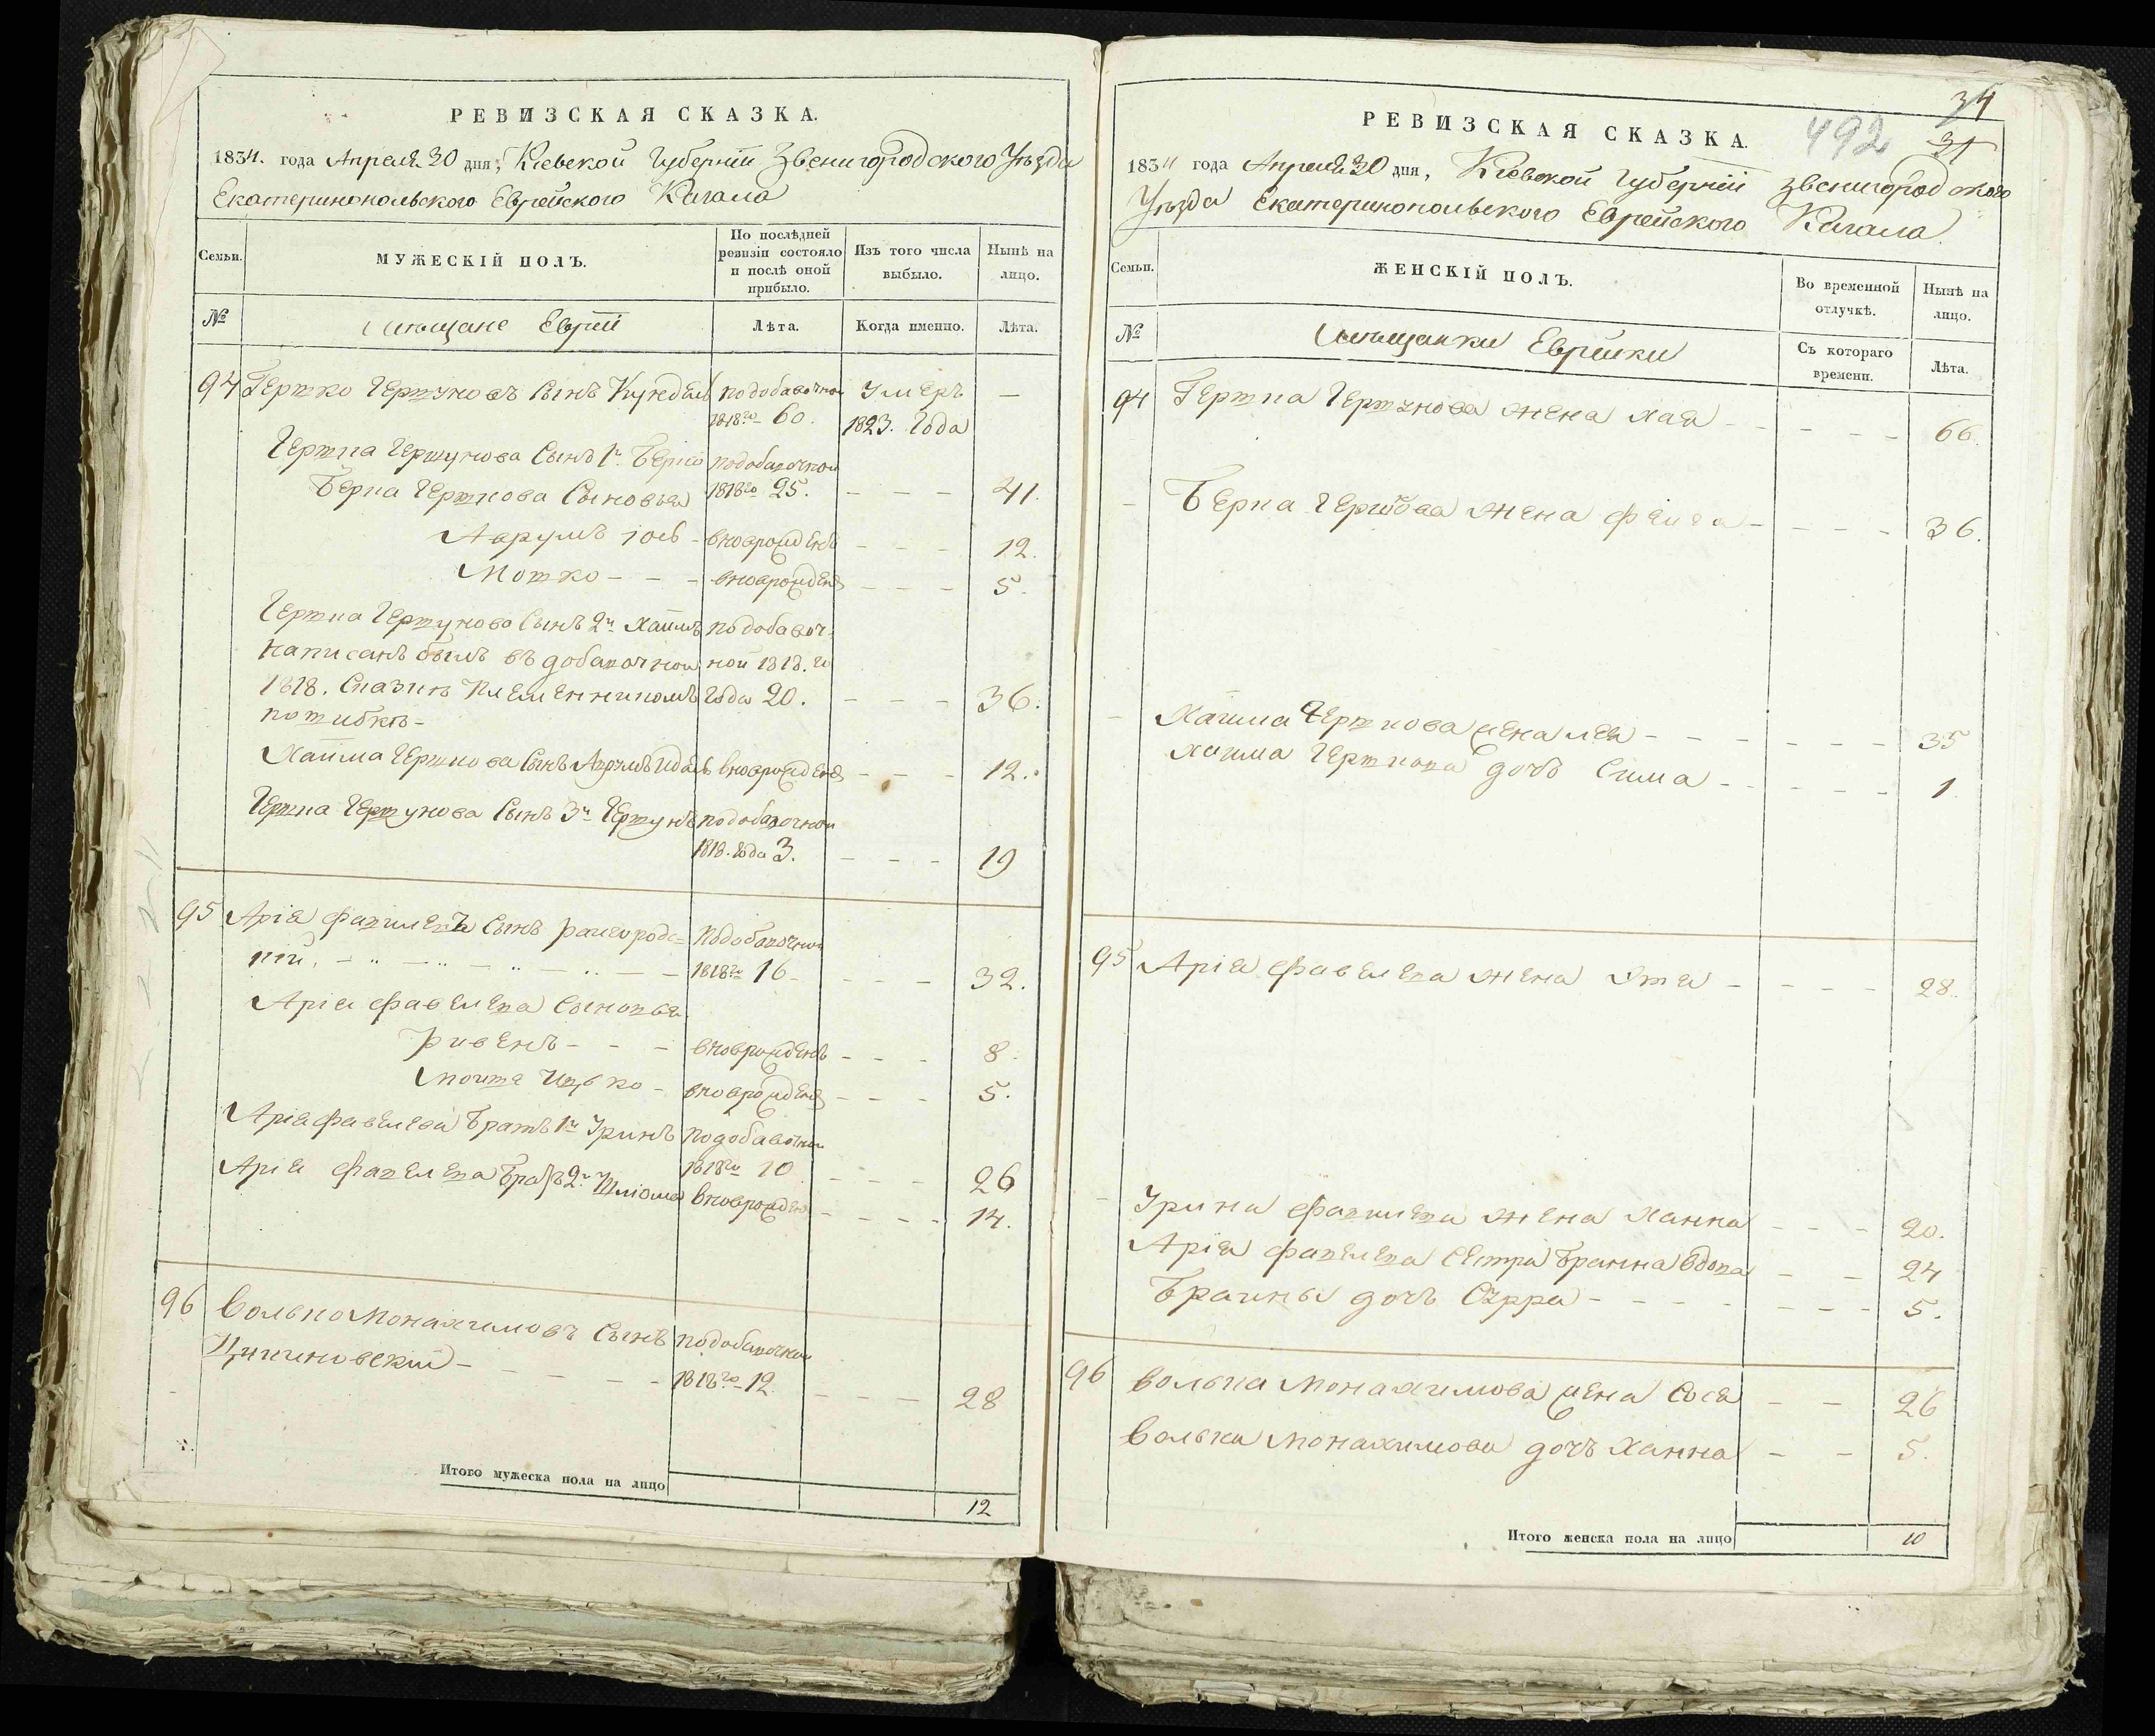 РЕВИЗСКАЯ СКАЗКА.
1834. года Апреля 30 дня, Кіевской Губерніи Звенигородского Уѣзда
Екатеринопольского Еврейского Кагала
Семьи.
МУЖЕСКІЙ ПОЛЪ.
По послѣдней ревизіи состояло и послѣ оной прибыло.
Изъ того числа выбыло.
Нынѣ на лицо.
№
мѣщане Евреи
Лѣта.
Когда именно.
Лѣта.
94 Гершко Гершуновъ Сынъ подобавочной Умеръ —
1818го 60. 1823. Года
Гершка Гершунова Сынъ 1й Берко подобавочной
Берка Гершкова Сыновья 1818го 25. — — — 41.
Аврумъ Іось - вноврожденъ — — — 12.
Мошко - - - вноврожденъ — — — 5.
Гершка Гершунова Сынъ 2й Хаимъ подобавоч-
написанъ былъ въ добавочной ной 1818. го
1818. Сказкѣ Племенникомъ года 20. — — — 36.
пошибкѣ-
Хаима Гершкова Сынъ Аврумъ вноврожденъ — — — 12.
Гершка Гершунова Сынъ 3й Гершунъ подобавочной
1818. Года 3. — — — 19
95 Арія Фавилевъ Сынъ Райгородс= Подобавочной
кій. — — — — 1818го 16 — — — 32.
Арія Фавелева Сыновья
Рувенъ - - - вноврожденъ — — — 8.
Мошка Ицко - вноврожденъ — — — 5.
Арія Фавелева Братъ 1й Уринъ подобавочной
1818го 10 — — — 26
Арія Фавелева Братъ 2й Шліома вноврожденъ — — — 14.
96 Волько Монахимовъ Сынъ подобавочной
Цигиновскій - — — — 1818го - 12. — — — 28
Итого мужеска пола на лицо
12
34
31
492
РЕВИЗСКАЯ СКАЗКА.
1834 года Апреля 30 дня, Кіевской Губерніи Звенигородского
Уѣзда Екатеринопольского Еврейского Кагала.
Семьи.
ЖЕНСКІЙ ПОЛЪ.
Во временной отлучкѣ.
Нынѣ на лицо.
№
мѣщанки Еврейки
Съ котораго времени.
Лѣта.
94 Гершка Гершунова жена Хая - — — — 66.
- Берка Гершкова жена Фейга - — — — 36.
- Хаима Гершкова жена Лея - — — — 35
Хаима Гершкова дочь Сима - — — — 1
95 Арія Фавелева жена Этя - — — — 28.
- Урина Фавилева жена Ханна — — — 20.
Арія Фавелева Сестра Браина вдова — — 24
Браины дочь Сурра - — — — 5.
96 Волька Монахимова жена Сося — — 26
Волька Монахимова дочь Ханна — — 5.
Итого женска пола на лицо
10